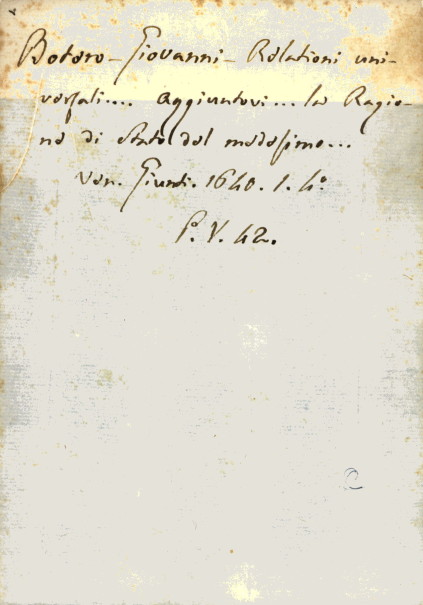 Botero - Giovanni - Relationi uni-
versali.... aggiuntovi... la Ragio-
ne di Stato del medesimo...
Ven. Giunti. 1640. 1. 4°
P. V. 42.